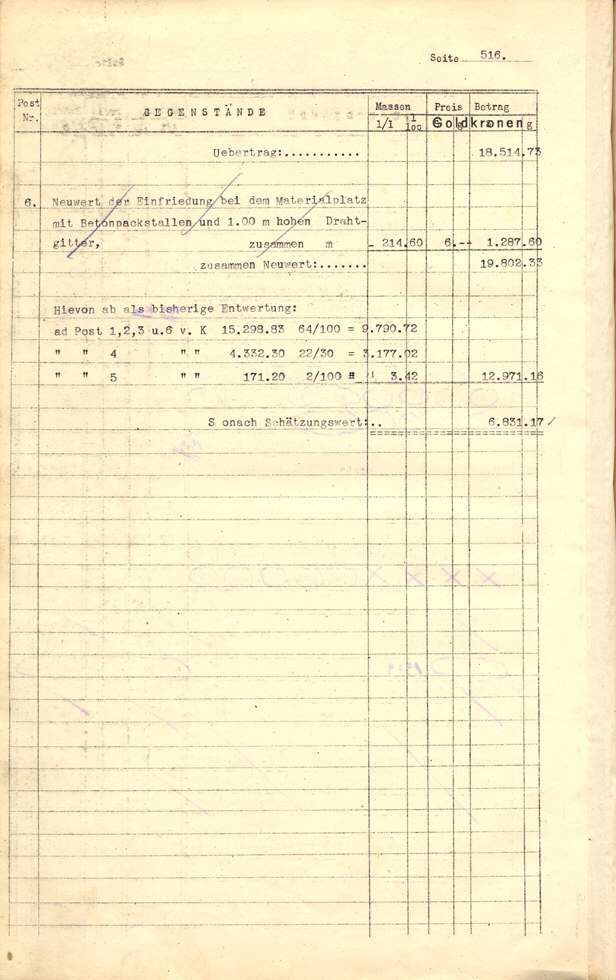 Seite 516.
Post Nr. GEGENSTÄNDE Massen 1/1 1/100 Preis Betrag Goldkronen g
Uebertrag:........... 18.514.73
6. Neuwert der Einfriedung bei dem Materialplatz
mit Betonpackstallen und 1.00 m hohen Draht-
gitter, zusammen m 214.60 6.-- 1.287.60
zusammen Neuwert:....... 19.802.33
Hievon ab als bisherige Entwertung:
ad Post 1,2,3 u.6 v. K 15.298.83 64/100 = 9.790.72
" " 4 " " 4.332.30 22/30 = 3.177.02
" " 5 " " 171.20 2/100 " " 3.42 12.971.16
S onach Schätzungswert:.. 6.831.17